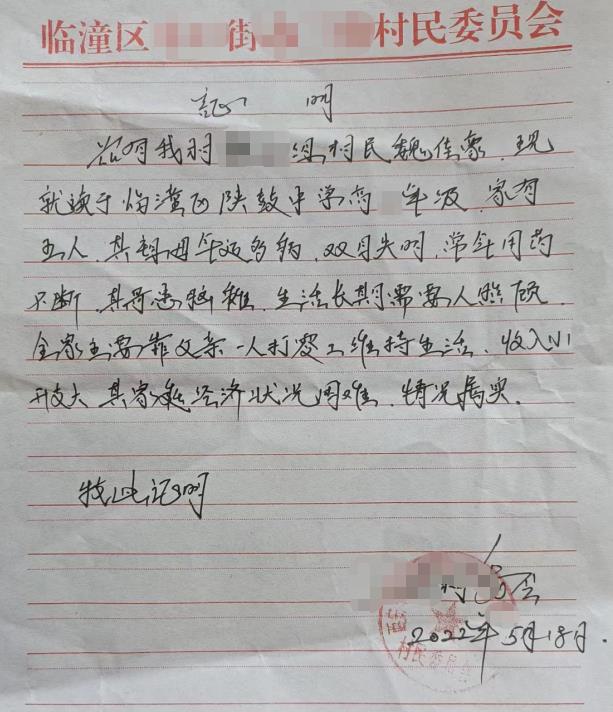 临潼区 街 村民委员会
证 明
兹有我村 组村民魏佳豪,现
就读于临潼区陕鼓中学高 年级,家有
五人,其祖母年迈多病,双目失明,常年用药
不断,其哥患脑瘫,生活长期需要人照顾,
全家主要靠父亲一人打零工维持生活,收入小
开支大,其家庭经济状况困难,情况属实。
特此证明
村委会
2022年5月18日.
村民委员会